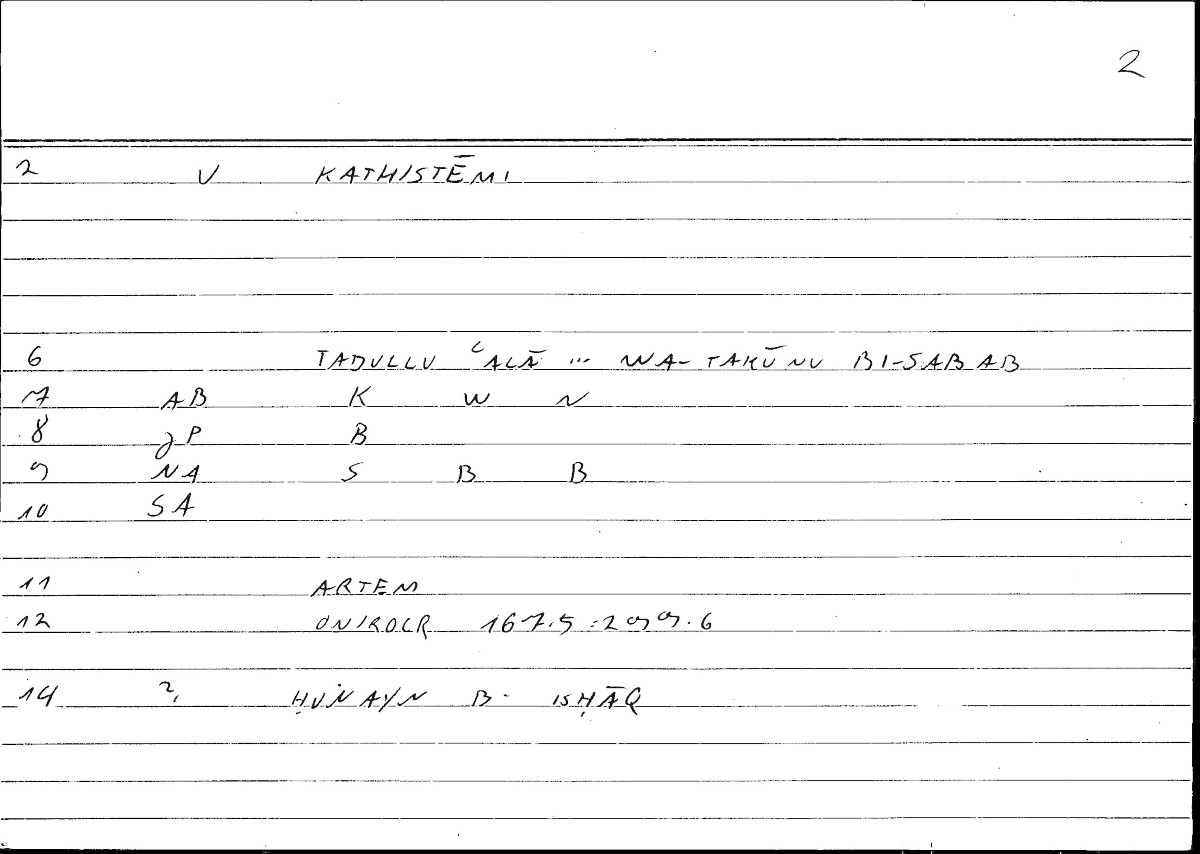 2
2 V KATHISTĒMI
6 TADULLU ʿALĀ ... WA-TAKŪNU BI-SABAB
7 AB K W N
8 JP B
9 NA S B B
10 SA
11 ARTEM
12 ONIROCR 167.5 : 299.6
14 2, ḤUNAYN B. ISḤĀQ